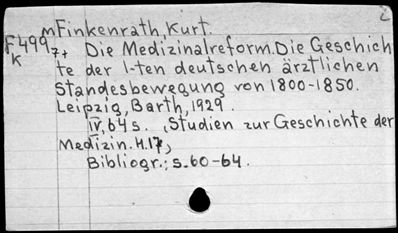 2
m Finkenrath, Kurt.
F 499 7+ Die Medizinalreform. Die Geschich
K te der 1-ten deutschen ärztlichen
Standesbewegung von 1800-1850.
Leipzig, Barth, 1929.
IV, 64 s. , Studien zur Geschichte der
Medizin. H. 17,
Bibliogr.: s. 60-64.